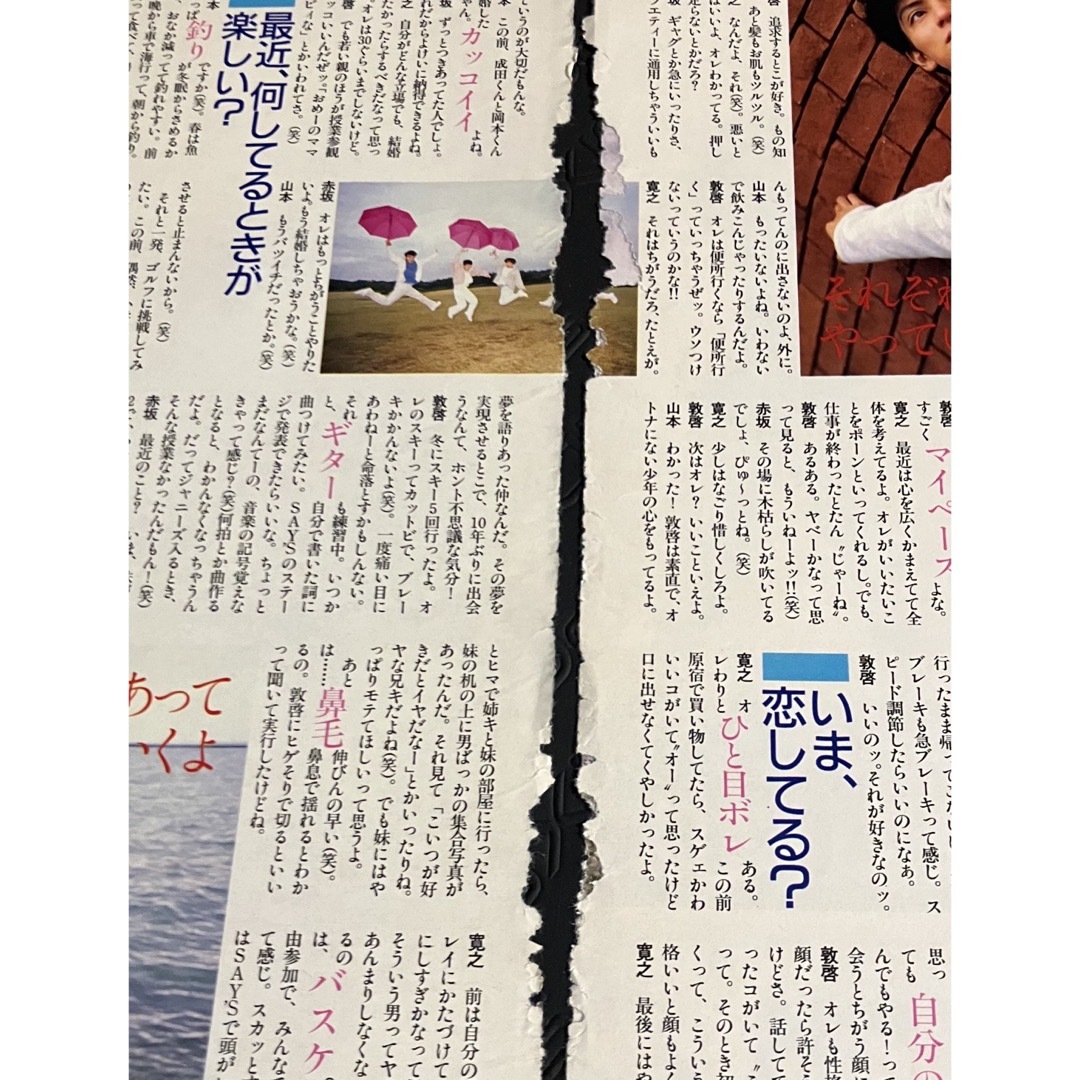 敦啓 追求するとこが好き。もの知
あと髪もお肌もツルツル。(笑)
なんだよ、それ(笑)。悪いと
はいいよ、オレわかってる。押し
走らないとかだろ?
ギャグとか急にいったりさ、
ラエティーに通用しちゃういいも
んもってんのに出さないのよ、外に。
山本 もったいないよね。いわない
で飲みこんじゃったりするんだよ。
敦啓 オレは便所行くなら「便所行
く」っていっちゃうぜッ。ウソつけ
ないっていうのかな!!
寛之 それはちがうだろ、たとえが。
それぞれ
やってい
敦啓
すごく マイペース よな。
寛之 最近は心を広くかまえてて全
体を考えてるよ。オレがいいたいこ
とをポーンといってくれるし。でも、
仕事が終わったとたん〝じゃーね〟
敦啓 あるある。ヤベーかなって思
って見ると、もういねーよッ!!(笑)
赤坂 その場に木枯らしが吹いてる
でしょ、ぴゅ〜っとね。(笑)
寛之 少しはなごり惜しくしろよ。
敦啓 次はオレ?いいこといえよ。
山本 わかった!敦啓は素直で、オ
トナにない少年の心をもってるよ。
いま、
恋してる?
ブレーキも急ブレーキって感じ。ス
ピード調節したらいいのになぁ。
敦啓 いいのッ。それが好きなのッ。
寛之 オ
レわりと ひと目ボレ ある。
この前
原宿で買い物してたら、スゲェかわ
いいコがいて〝オー〟って思ったけど
口に出せなくてくやしかったよ。
思っ
ても 自分の
んでもやる!っ
会うとちがう顔に
敦啓 オレも性格
顔だったら許そ
けどさ。話してて
ったコがいて〝こ
って。そのとき初
くって、こういう
格いいと顔もよく
寛之 最後にはや
ていうのが大切だもんな。
この前、成田くんと岡本くん
婚した カッコイイ よね。
ずっとつきあってた人でしょ。
れだからよけいに納得できるよね。
自分がどんな立場でも、結婚
たかったらするべきだなって思っ
オレは30ぐらいまでしないけど。
でも若い親のほうが授業参観
ッコいいんだぜッ。「おめーのママ
ピィな」とかいわれてさ。(笑)
赤坂 オレはもっとちがうことやりた
いよ。もう結婚しちゃおうかな。(笑)
山本 もうバツイチだったとか。(笑)
最近、何してるときが
楽しい?
釣り ですか(笑)。春は魚
が冬眠からさめるか
おなか減ってて釣れやすい。前
晩から車で海行って、朝から釣り。
って食べて、
させると止まんないから。(笑)
それと一発、ゴルフに挑戦してみ
たい。この前、偶然、
夢を語りあった仲なんだ。その夢を
実現させるとこで、10年ぶりに出会
うなんて、ホント不思議な気分!
敦啓 冬にスキー5回行ったよ。オ
レのスキーってカットビで、ブレー
キかかんないよ(笑)。一度痛い目に
あわねーと命落とすかもしんない。
それ
と、ギター も練習中。いつか
自分で書いた詞に
曲つけてみたい。SAY'Sのステー
ジで発表できたらいいな。ちょっと
まだなんてーの、音楽の記号覚えな
きゃって感じ?(笑)何拍とか曲作る
となると、わかんなくなっちゃうん
だよ。だってジャニーズ入るとき、
そんな授業なかったんだもん!(笑)
赤坂 最近のこと?
とヒマで姉キと妹の部屋に行ったら、
妹の机の上に男ばっかの集合写真が
あったんだ。それ見て「こいつが好
きだとイヤだなー」とかいったりね。
ヤな兄キだよね(笑)。でも妹にはや
っぱりモテてほしいって思うよ。
あと
は……鼻毛 伸びんの早い(笑)。
鼻息で揺れるとわか
るの。敦啓にヒゲそりで切るといい
って聞いて実行したけどね。
あって
いくよ
寛之 前は自分の
レイにかたづけて
にしすぎかなって
そういう男ってヤ
あんまりしなくな
るの
は、バスケ
由参加で、みんな
て感じ。スカッと
はSAY'Sで頭が